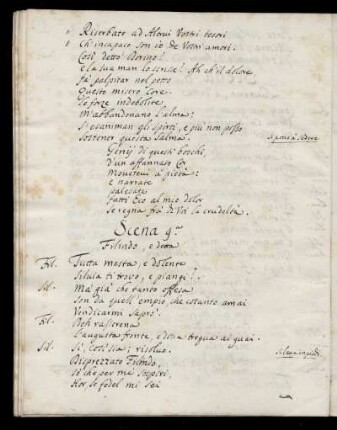 " Riserbate ad Altrui Vostri tesori
" Ch'incapace son io de Vostri amori.
Così detto Dorino!
e la sua man lo scrisse! Ah ch'il dolore,
fà palpitar nel petto
Questo misero Core.
le forze indebolite,
m'abbandonano l'alma:
S'esaniman gli spirti, e più non posso
sostener questa Salma.
si pone à sedere
Genij di questi boschi,
d'un affannato Cor
Movetevi à pietà:
e narrate
palesate
fatti Eco al mio dolor
se regna frà di Voi la crudeltà.
Scena 9.na
Filindo, e detta
Fil. Tutta mesta, e dolente
Silvia ti trovo, e piangi?
Sil. Ma già che tanto offesa
Son da quell'empio, che cotanto amai
Vendicarmi saprò.
Fil. Deh rasserena
l'augusta fronte, e dona tregua ai guai.
Sil. Sì, così sia; risolvo.
Disprezzato Filindo,
sò che per me sospiri,
Hor, se fedel mi sei